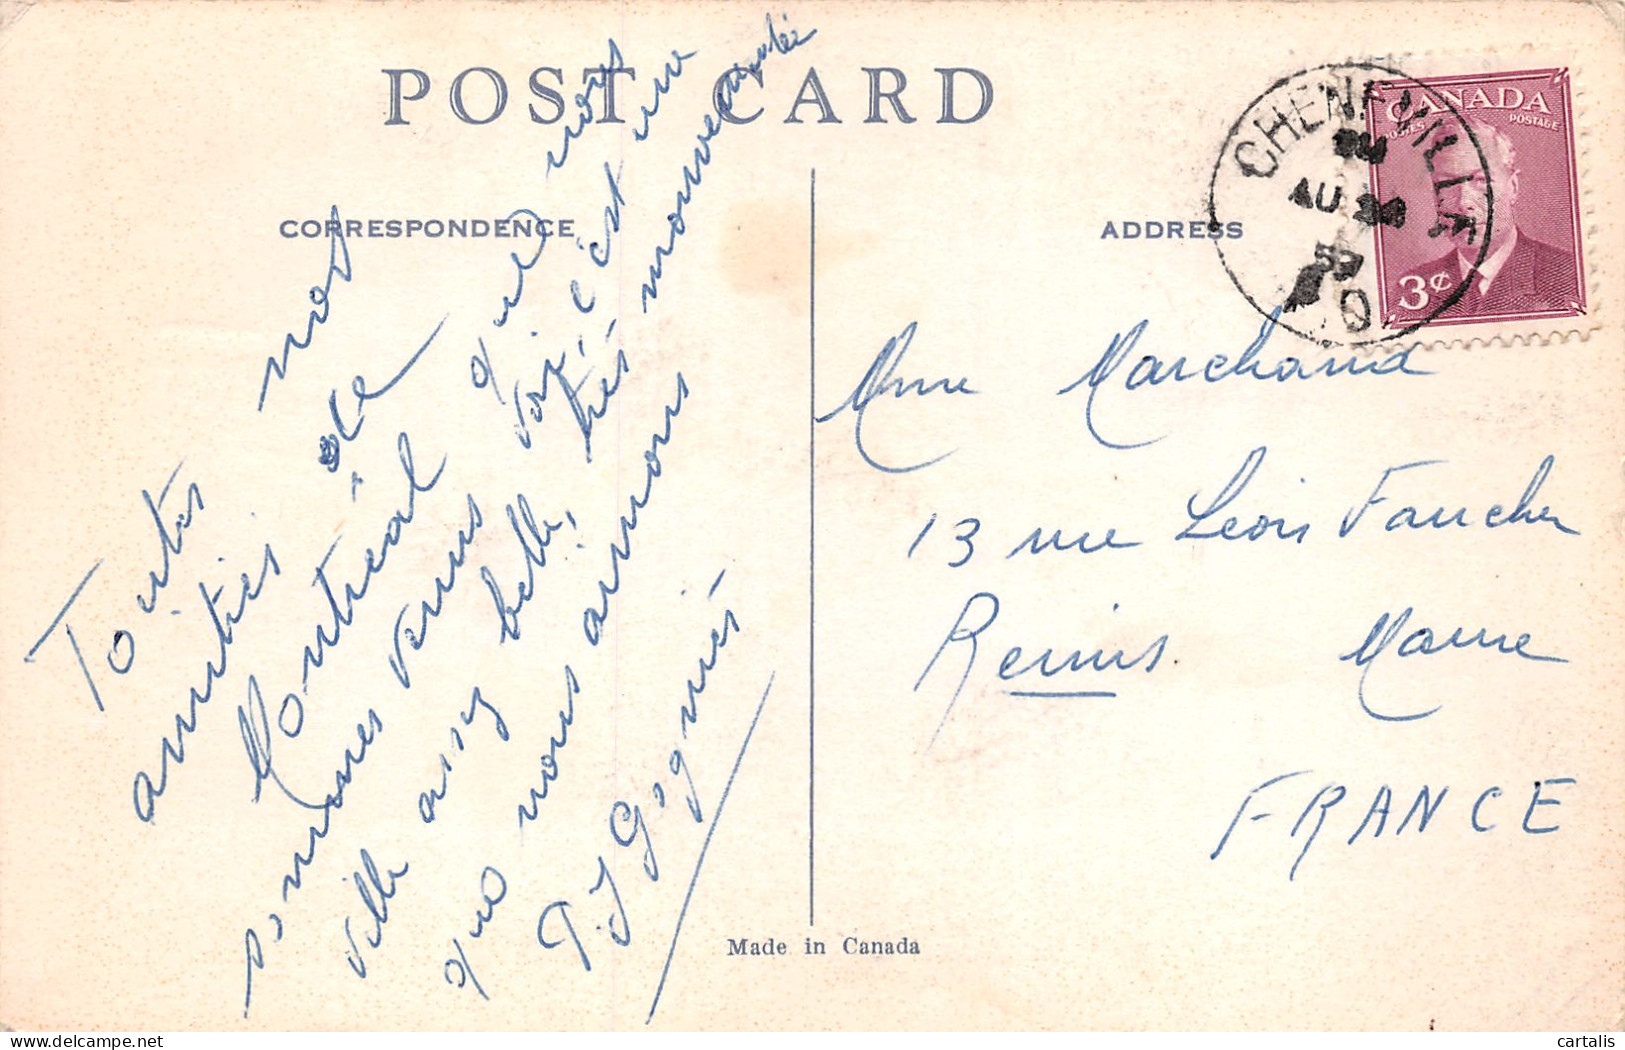 POST CARD
CORRESPONDENCE
ADDRESS
Toutes nos
amitiés de
Montréal que nous
sommes venus voir, c'est une
ville assez belle, très mouvementée
que nous aimons
Gognié
CANADA
POSTES POSTAGE
3¢
CHENEVILLE
AU
57
Q
Mme Marchand
13 rue Léon Faucher
Reims Marne
FRANCE
Made in Canada
delcampe.net
cartalis